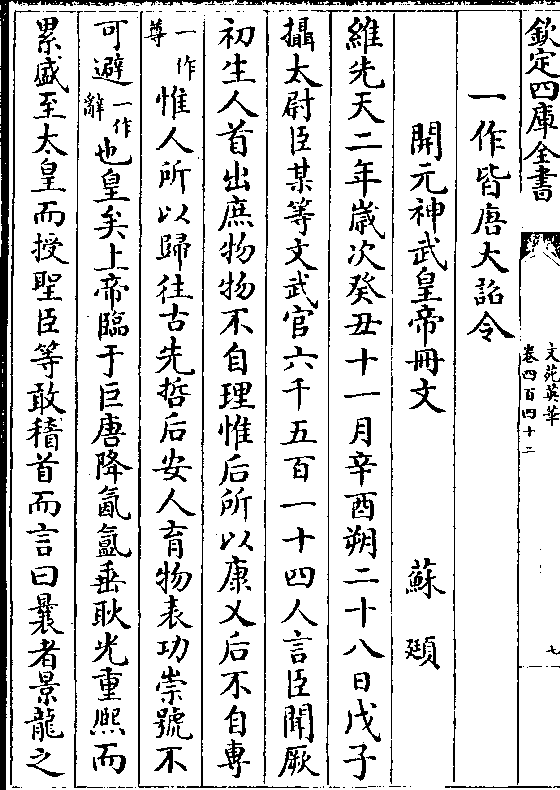 欽定四庫全書
文苑英華
卷四百四十二
七
一作皆唐大詔令
開元神武皇帝冊文 蘇頲
維先天二年歲次癸丑十一月辛酉朔二十八日戊子
攝太尉臣某等文武官六千五百一十四人言臣聞厥
初生人首出庶物物不自理惟后所以康乂后不自專
一作等惟人所以歸往古先哲后安人育物表功崇號不
可避一作辭也皇矣上帝臨于巨唐降氤氲垂耿光重熙而
累盛至太皇而授聖臣等敢稽首而言曰曩者景龍之